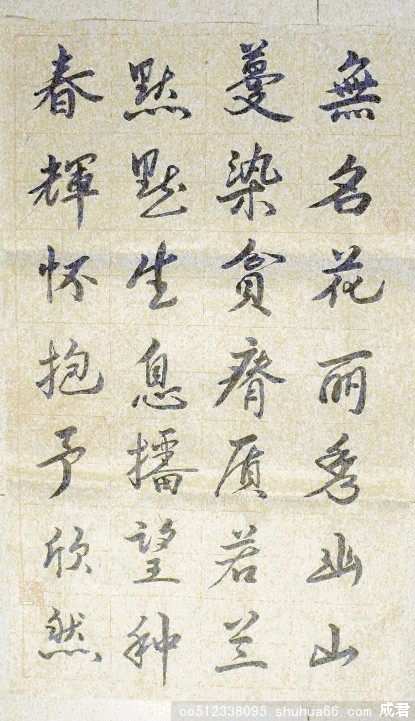 無名花丽秀幽山
蔓染貧瘠质若兰
點點生息播望种
春輝怀抱予欣然
oo512338095. shuhua66.com 成君